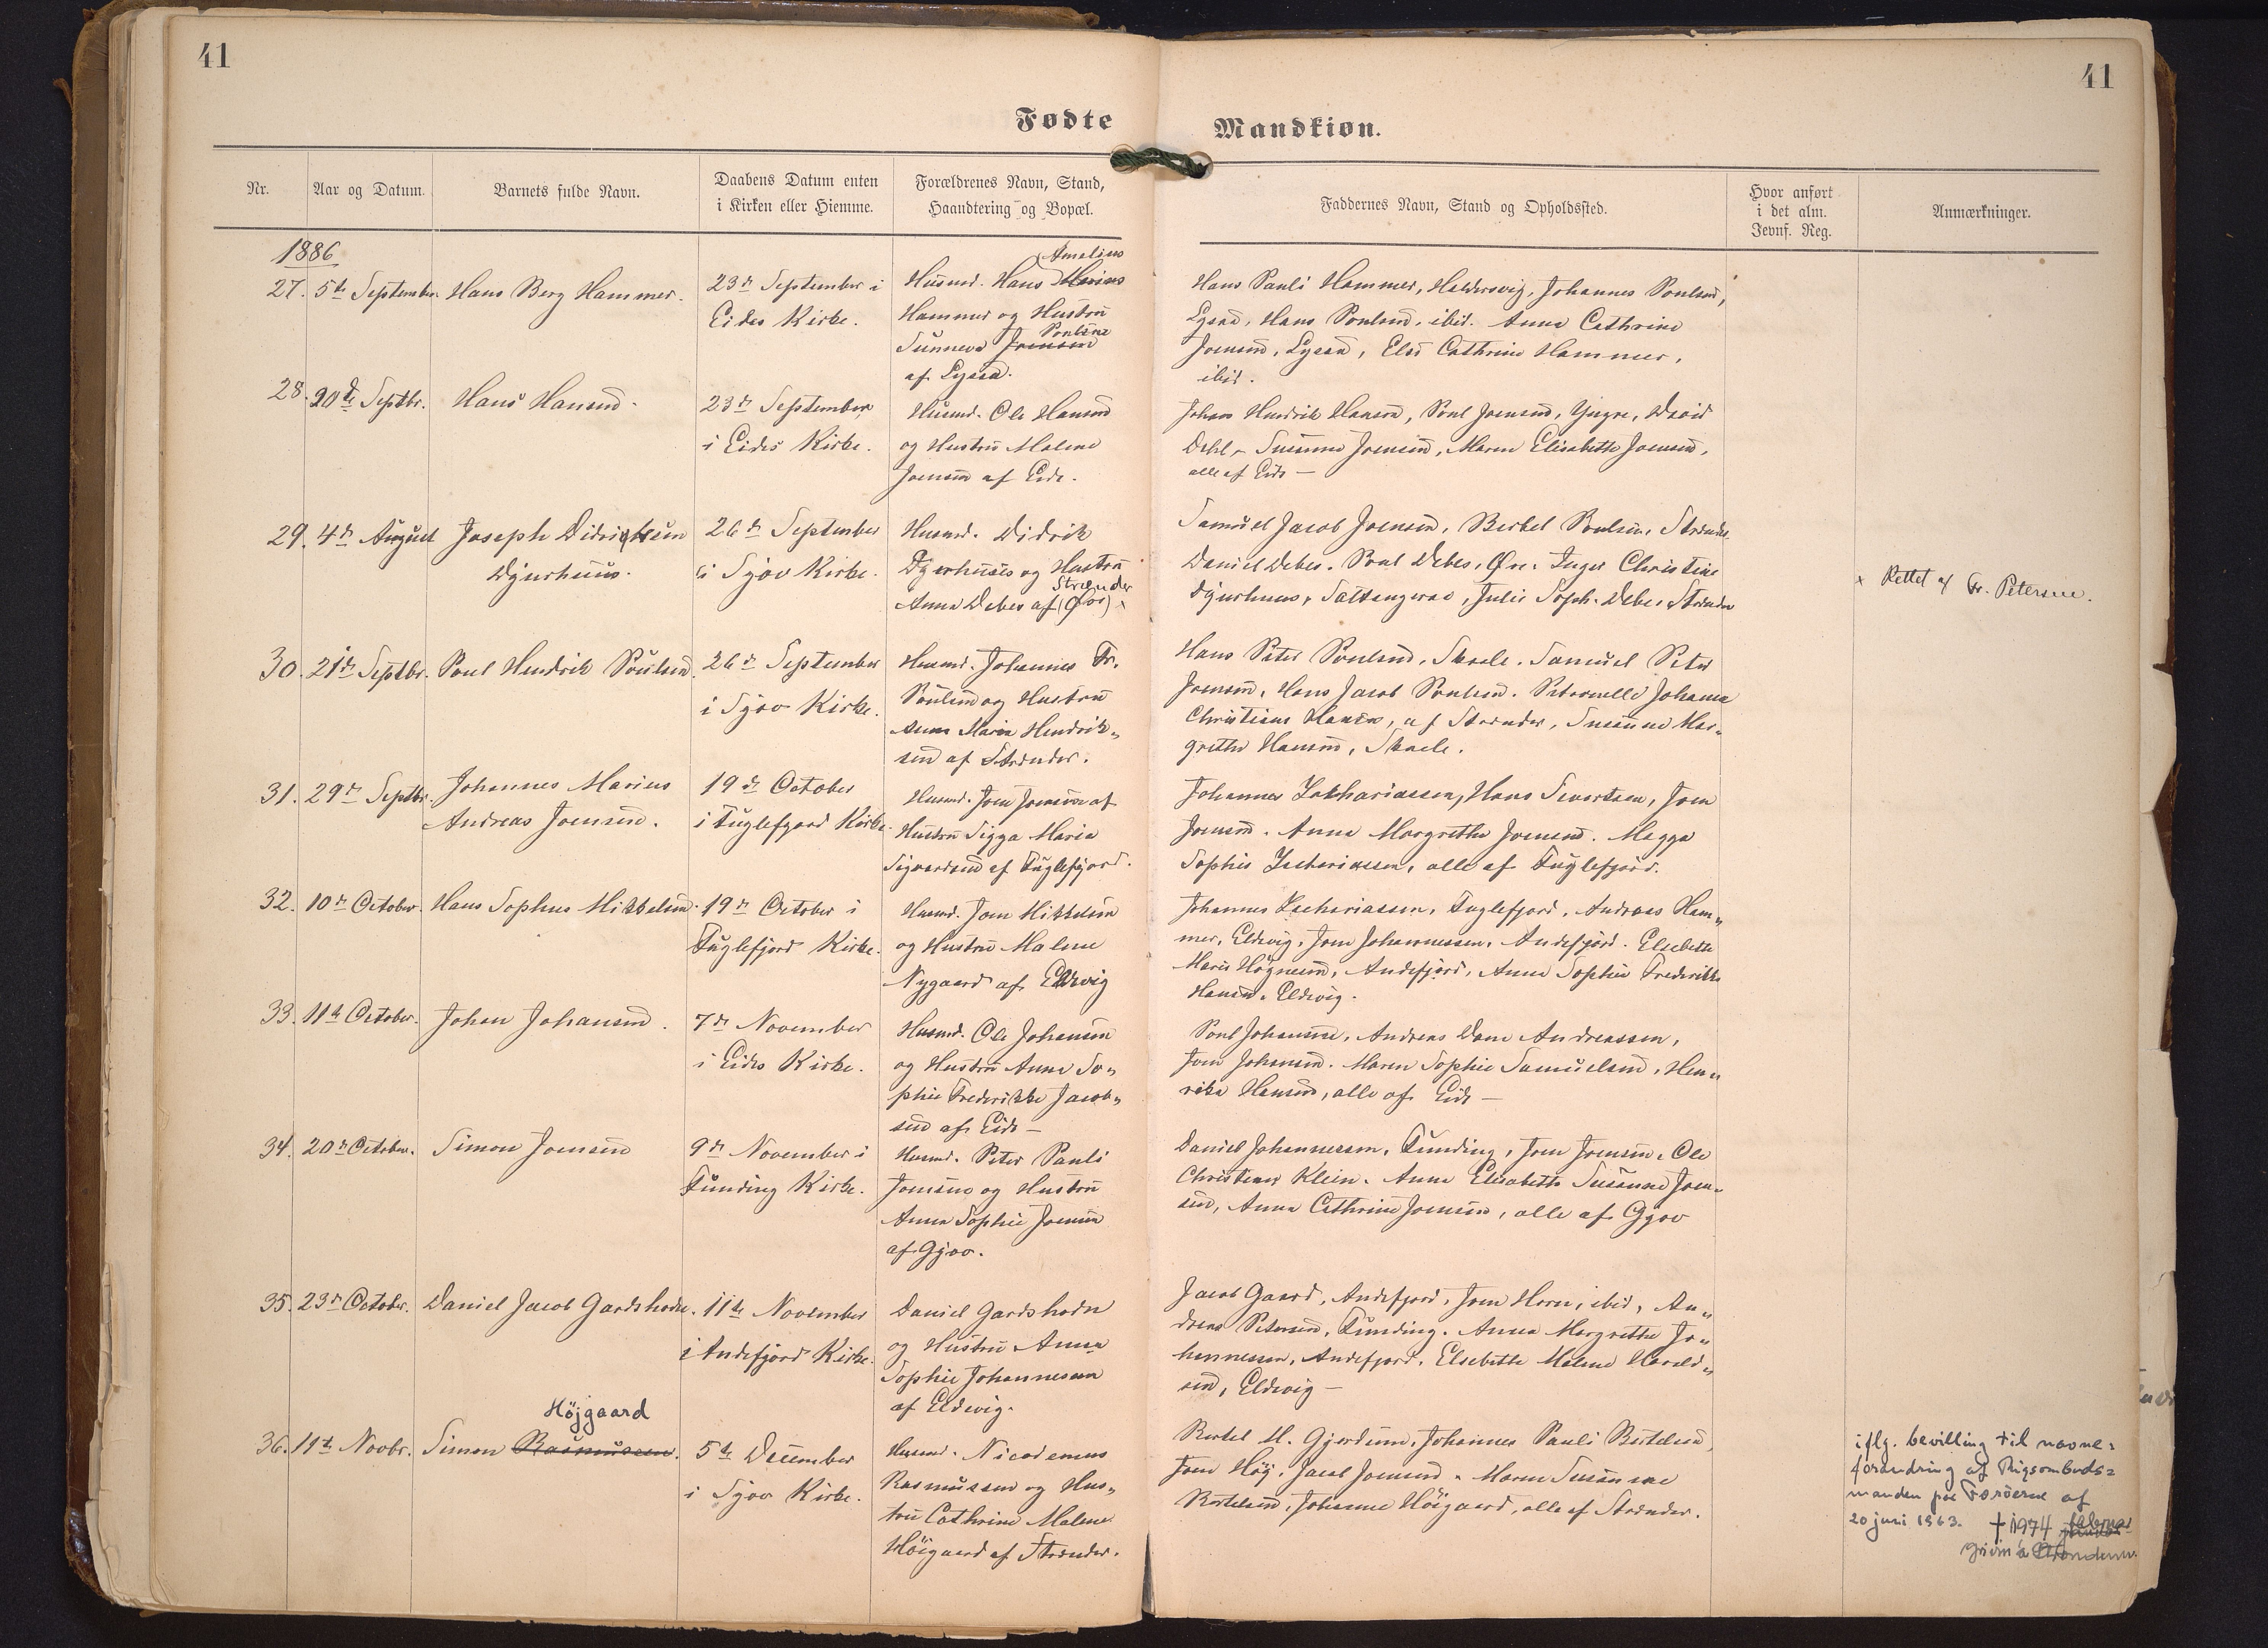 41
41
Fødte
Mandkiøn.
Nr.
Aar og Datum.
Barnets fulde Navn.
Daabens Datum enten
i Kirken eller Hiemme.
Forældrenes Navn, Stand,
Haandtering og Bopæl.
Faddernes Navn, Stand og Opholdssted.
Hvor anført
i det alm.
Jevnf. Reg.
Anmærkninger.
1886
27. 5te September.
Hans Berg Hammer.
23de September i
Eides Kirke.
Amelius
Husmd. Hans Marius
Hammer og Hustru
Poulsen
Sunneva Joensen
af
Hans Pauli Hammer, Haldersvig, Johannes Poulsen,
Hans Poulsen, ibid. Anna Cathrine
Joensen, Else Cathrine Hammer,
ibid.
28. 20de Septbr.
Hans Hansen.
23de September
i Eides Kirke.
Husmd. Ole Hansen
og Hustru Malene
Joensen af Eide.
Johan Hendrik Hansen, Poul Joensen, Yngre, David
Dahl, Susanne Joensen, Maren Elisabeth Joensen,
alle af Eide —
29. 4de August
Joseph Didriksen
Djurhuus.
26de September
i Sjov Kirke.
Husmd. Didrik
Djurhuus og Hustru
Strænder
Anna Debes af (Øre) x
Samuel Jacob Joensen, Berkel Poulsen, Strænder
Daniel Debes. Poul Debes, Øre. Inger Christine
Djurhuus, Saltangeraa, Julie Soph. Debes, Strænder
x Rettet af Fr. Petersen.
30. 21de Septbr.
Poul Hendrik Poulsen.
26de September
i Sjov Kirke.
Husmd. Johannes Fr.
Poulsen og Hustru
Anna Maria Hendrik-
sen af Strænder.
Hans Peter Poulsen, Skaale. Samuel Peter
Joensen, Hans Jacob Poulsen. Petronelle Johanna
Christiane Hansen, af Strænder, Susanne Mar-
grethe Hansen, Skaale.
31. 29de Septbr.
Johannes Marius
Andreas Joensen.
19de October
i Fuglefjord Kirke.
Husmd. Joen Joensen af
Hustru Sigga Maria
Sigvardsen af Fuglefjord.
Johannes Zakhariassen, Hans Sivertsen, Joen
Joensen. Anna Margrethe Joensen. Magga
Sophie Zachariassen, alle af Fuglefjord.
32. 10de October.
Hans Sophus Mikkelsen.
19de October i
Fuglefjord Kirke.
Husmd. Joen Mikkelsen
og Hustru Malene
Nygaard af Eldevig
Johannes Zachariassen, Fuglefjord, Andreas Ham-
mer, Eldevig, Joen Johannessen, Andefjord. Elsebeth
Marie Høgnesen, Andefjord, Anna Sophie Frederikke
Hansen, Eldevig.
33. 11te October.
Johan Johansen.
7de November
i Eides Kirke.
Husmd. Ole Johansen
og Hustru Anna So-
phie Frederikke Jacob-
sen af Eide —
Poul Johansen, Andreas Dam Andreassen,
Joen Johansen. Maren Sophie Samuelsen, Hen-
rika Hansen, alle af Eide —
34. 20de October.
Simon Joensen
9de November i
Funding Kirke.
Husmd. Peter Pauli
Joensen og Hustru
Anna Sophie Joensen
af Gjov.
Daniel Johannessen, Funding, Joen Joensen, Ole
Christian Klein. Anna Elisabeth Susanne Joen-
sen, Anna Cathrine Joensen, alle af Gjov
35. 23de October.
Daniel Jacob Gardshodn.
11te November
i Andefjord Kirke.
Daniel Gardshodn
og Hustru Anna
Sophie Johannesen
af Eldevig.
Jacob Gaard, Andefjord, Joen Horn, ibid, An-
dreas Petersen, Funding. Anna Margrethe Jo-
hannessen, Andefjord, Elsebeth Malene Harald-
sen, Eldevig —
36. 11te Novbr.
Højgaard
Simon Rasmussen.
5te December
i Sjov Kirke.
Husmd. Nicodemus
Rasmussen og Hus-
tru Cathrine Malene
Höigaard af Strænder.
Bertel M. Gjerdum, Johannes Pauli Bertelsen,
Joen Høj, Jacob Joensen. Maren Susanne
Bertelsen, Johanne Höigaard, alle af Strænder.
iflg. bevilling til navne=
forandring af Rigsombuds=
manden paa Færöerne af
20 juni 1963. † 1974 februar